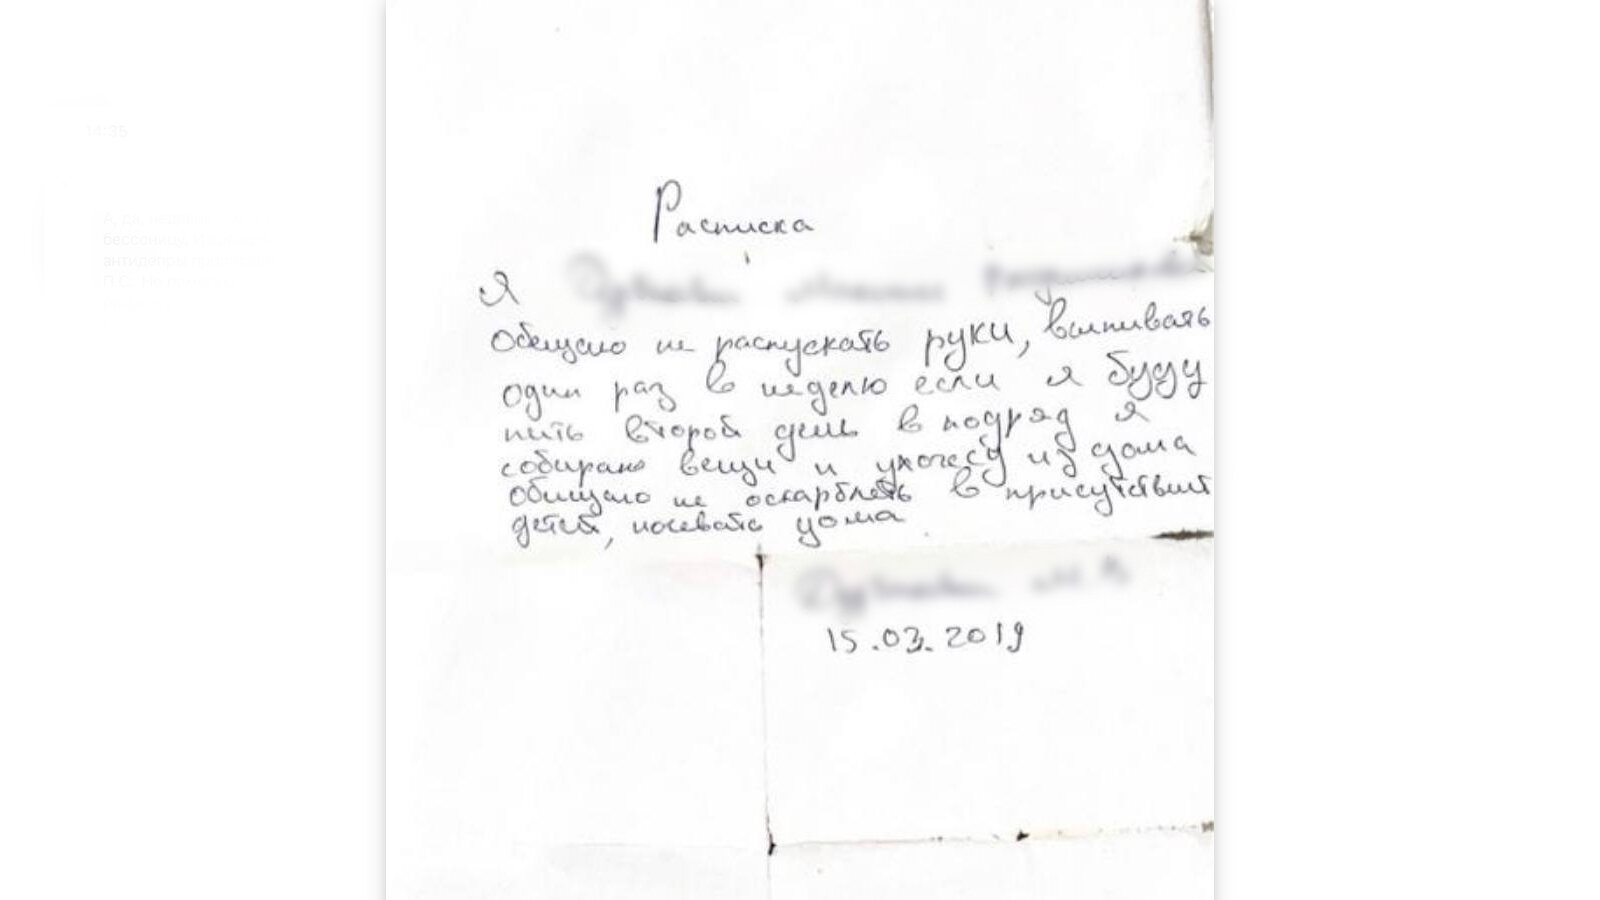 14:35
Расписка
Я
Обещаю не распускать руки, выпивать
один раз в неделю если я буду
пить второй день в подряд я
собираю вещи и ухожу из дома
Обещаю не оскарблять в присутствии
детей, ночевать дома
15.03.2019